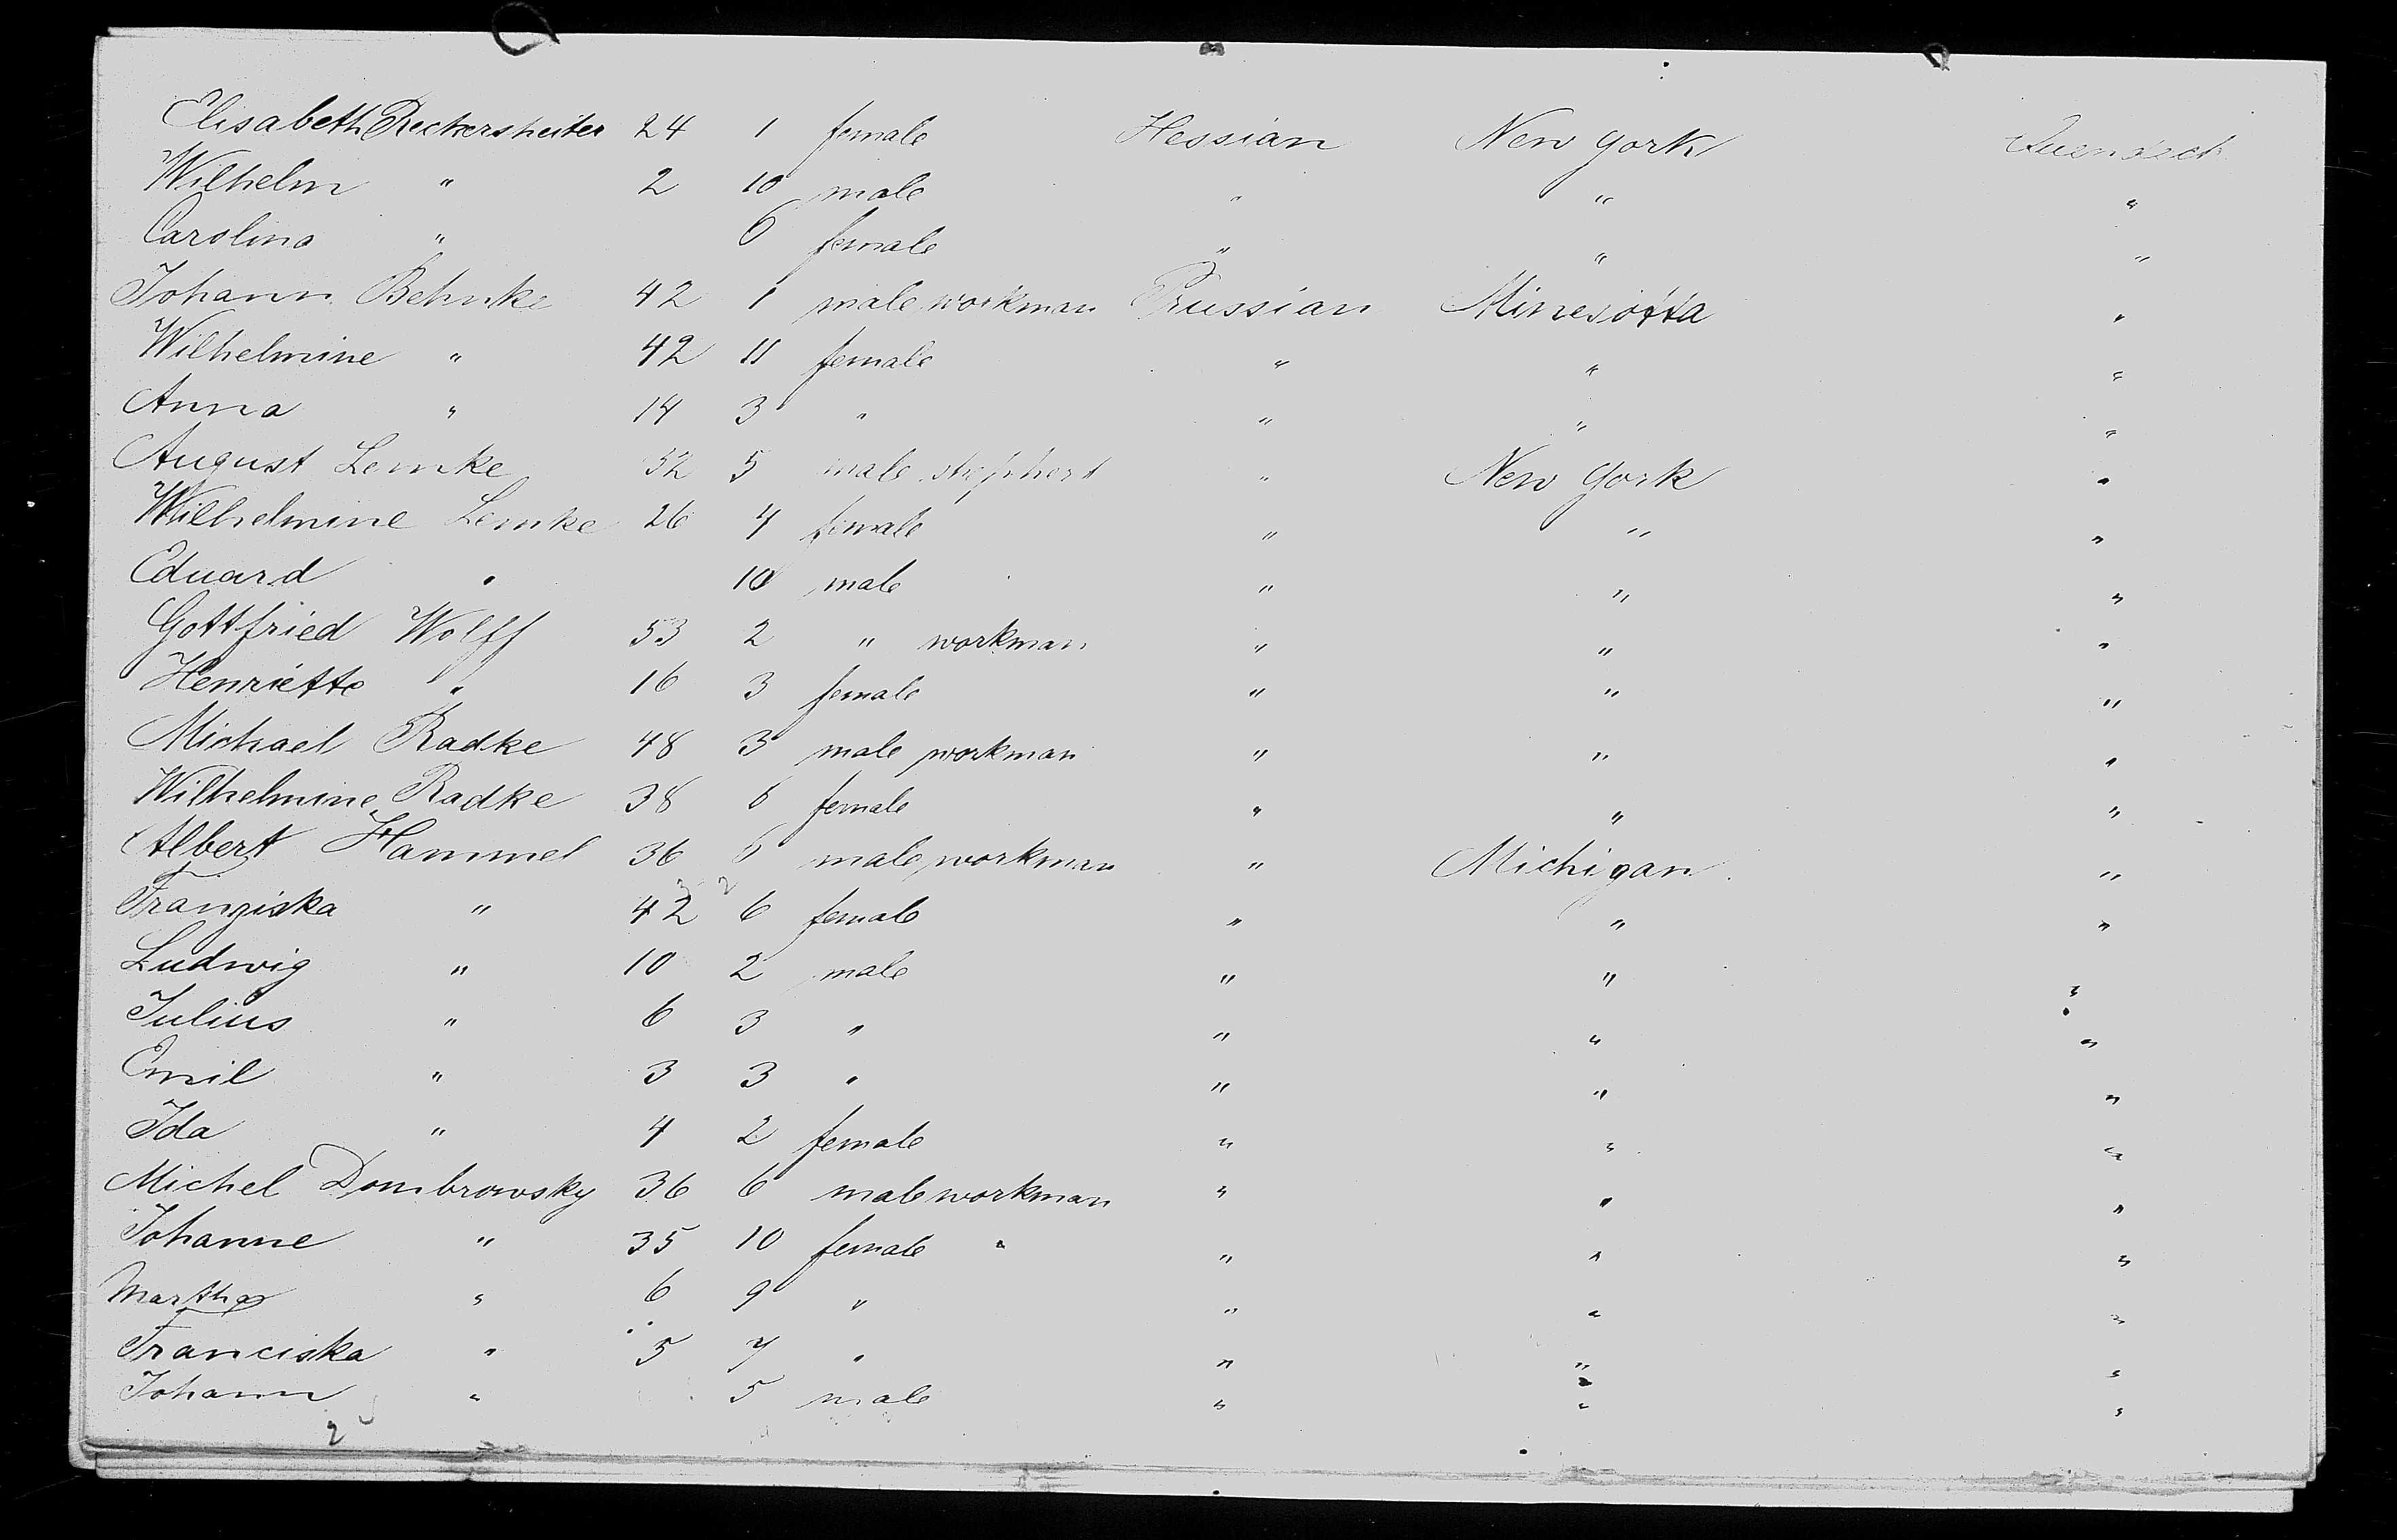 Elisabeth Reckersheiter 24 1 female Hessian New York
Wilhelm " 2 10 male " " "
Carolina " 6 female " " "
Johann Behnke 42 1 male workman Prussian Minesotta "
Wilhelmine " 42 11 female " " "
Anna " 14 3 " " " "
August Lemke 32 5 male shephert " New York "
Wilhelmine Lemke 26 4 female " " "
Eduard " 10 male " " "
Gottfried Wolff 53 2 " workman " " "
Henriette " 16 3 female " " "
Michael Radke 48 3 male workman " " "
Wilhelmine Radke 38 6 female " " "
Albert Hammel 36 6 male workman " Michigan "
Franziska " 42 6 female " " "
Ludwig " 10 2 male " " "
Julius " 6 3 " " " "
Emil " 3 3 " " " "
Ida " 4 2 female " " "
Michel Dombrowsky 36 6 male workman " " "
Johanne " 35 10 female " " " "
Martha " 6 9 " " " "
Franciska " 5 7 " " " "
Johann " 5 male " " "
2